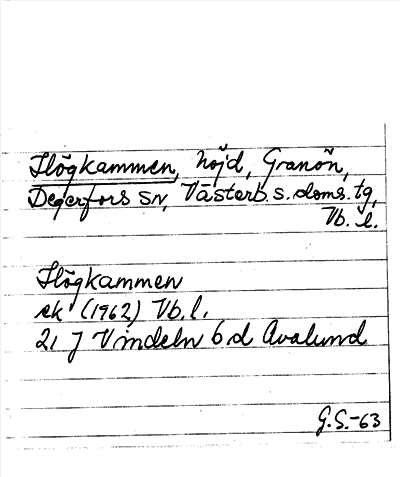 Högkammen, höjd, Granön,
Degerfors sn, Västerb. s. doms. tg,
Vb. l.
Högkammen
ek (1962) Vb. l.
21 J Vindeln 6 d Avalund
G.S.-63